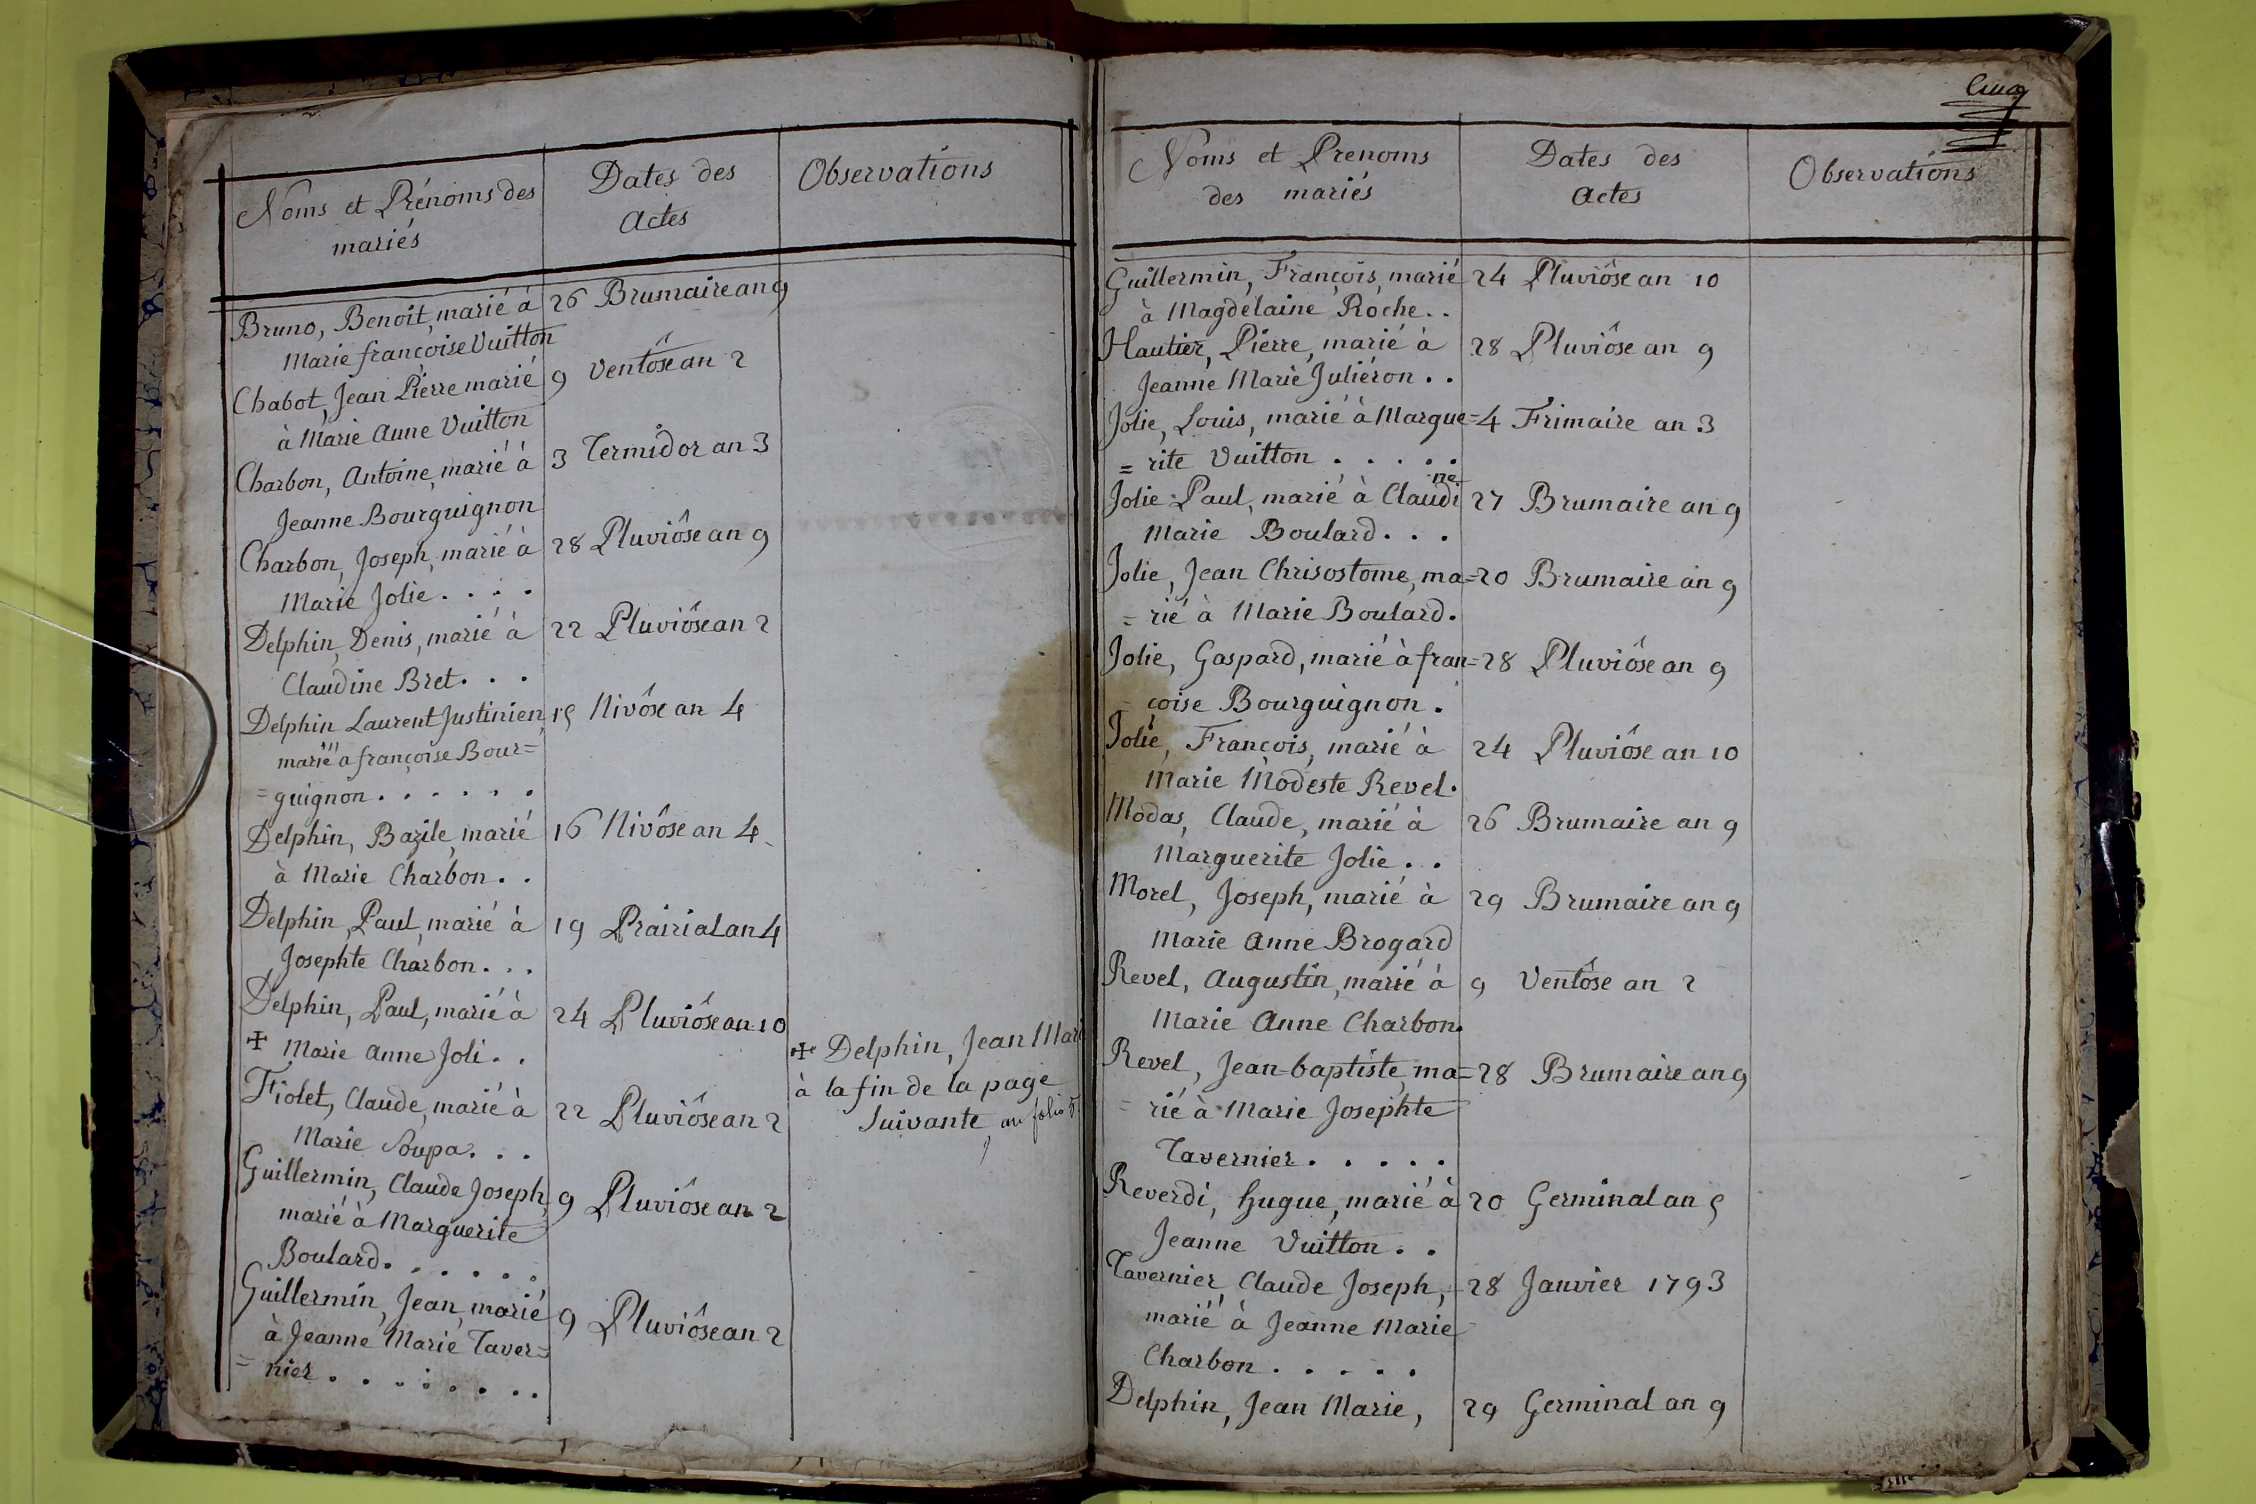 Noms et Prénoms des
mariés
Dates des
Actes
Observations
Bruno, Benoit, marié à 26 Brumaire an 9
Marie françoise Vuitton
Chabot, Jean Pierre marié 9 Ventôse an 2
à Marie Anne Vuitton
Charbon, Antoine, marié à 3 Termidor an 3
Jeanne Bourguignon
Charbon, Joseph, marié à 28 Pluviôse an 9
Marie Jolie . . . .
Delphin, Denis, marié à 22 Pluviôse an 2
Claudine Bret . . .
Delphin Laurent Justinien 15 Nivôse an 4
marié à françoise Bour=
=guignon . . . . . .
Delphin, Bazile, marié 16 Nivôse an 4
à Marie Charbon . .
Delphin, Paul, marié à 19 Prairial an 4
Josephte Charbon . . .
Delphin, Paul, marié à 24 Pluviôse an 10
✠ Marie Anne Joli . .
✠ Delphin, Jean Mari
à la fin de la page
Suivante, au folio 5.
Fiolet, Claude, marié à 22 Pluviôse an 2
Marie Soupa . . .
Guillermin, Claude Joseph, 9 Pluviôse an 2
marié à Marguerite
Boulard . . . . . .
Guillermin, Jean, marié 9 Pluviôse an 2
à Jeanne Marie Taver=
= nier . . . . . . . .
Cinq
Noms et Prenoms
des mariés
Dates des
Actes
Observations
Guillermin, François, marié 24 Pluviôse an 10
à Magdelaine Roche . .
Hautier, Pierre, marié à 28 Pluviôse an 9
Jeanne Marie Juliéron . .
Jolie, Louis, marié à Margue= 4 Frimaire an 3
= rite Vuitton . . . . .
Jolie Paul, marié à Claudine 27 Brumaire an 9
Marie Boulard . . .
Jolie, Jean Chrisostome, ma= 20 Brumaire an 9
= rié à Marie Boulard.
Jolie, Gaspard, marié à fran= 28 Pluviôse an 9
= çoise Bourguignon .
Jolie, François, marié à 24 Pluviôse an 10
Marie Modeste Revel.
Modas, Claude, marié à 26 Brumaire an 9
Marguerite Jolie . .
Morel, Joseph, marié à 29 Brumaire an 9
Marie Anne Brogard
Revel, Augustin, marié à 9 Ventôse an 2
Marie Anne Charbon.
Revel, Jean-baptiste, ma= 28 Brumaire an 9
= rié à Marie Josephte
Tavernier . . . . .
Reverdi, hugue, marié à 20 Germinal an 5
Jeanne Vuitton . .
Tavernier, Claude Joseph, 28 Janvier 1793
marié à Jeanne Marie
Charbon . . . . .
Delphin, Jean Marie, 29 Germinal an 9